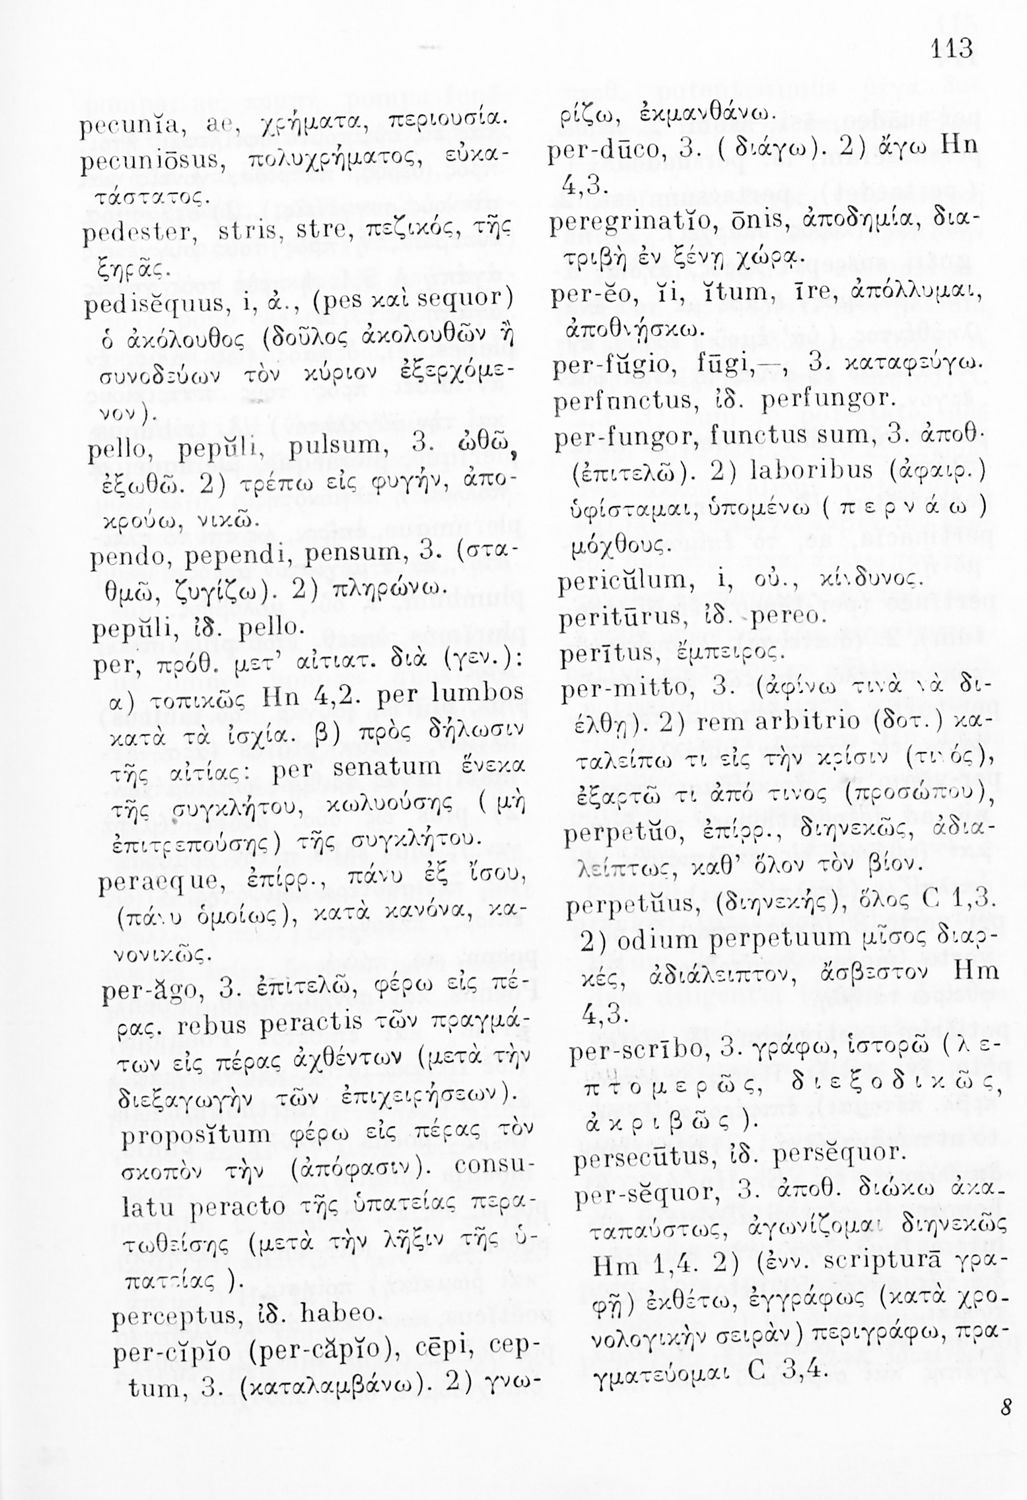 113
pecunĭa, ae, χρήματα, περιουσία.
pecuniōsus, πολυχρήματος, εὐκα-
τάστατος.
pedester, stris, stre, πεζικός, τῆς
ξηρᾶς.
pedisĕquus, i, ἀ., (pes καὶ sequor)
ὁ ἀκόλουθος (δοῦλος ἀκολουθῶν ἢ
συνοδεύων τὸν κύριον ἐξερχόμε-
νον).
pello, pepŭli, pulsum, 3. ὠθῶ,
ἐξωθῶ. 2) τρέπω εἰς φυγήν, ἀπο-
κρούω, νικῶ.
pendo, pependi, pensum, 3. (στα-
θμῶ, ζυγίζω). 2) πληρώνω.
pepŭli, ἰδ. pello.
per, πρόθ. μετ’ αἰτιατ. διὰ (γεν.):
α) τοπικῶς Hn 4,2. per lumbos
κατὰ τὰ ἰσχία. β) πρὸς δήλωσιν
τῆς αἰτίας: per senatum ἕνεκα
τῆς συγκλήτου, κωλυούσης (μὴ
ἐπιτρεπούσης) τῆς συγκλήτου.
peraeque, ἐπίρρ., πάνυ ἐξ ἴσου,
(πάνυ ὁμοίως), κατὰ κανόνα, κα-
νονικῶς.
per-ăgo, 3. ἐπιτελῶ, φέρω εἰς πέ-
ρας. rebus peractis τῶν πραγμά-
των εἰς πέρας ἀχθέντων (μετὰ τὴν
διεξαγωγὴν τῶν ἐπιχειρήσεων).
proposĭtum φέρω εἰς πέρας τὸν
σκοπὸν τὴν (ἀπόφασιν). consu-
latu peracto τῆς ὑπατείας περα-
τωθείσης (μετὰ τὴν λῆξιν τῆς ὑ-
πατείας ).
perceptus, ἰδ. habeo.
per-cĭpĭo (per-căpĭo), cēpi, cep-
tum, 3. (καταλαμβάνω). 2) γνω-
ρίζω, ἐκμανθάνω.
per-dūco, 3. ( διάγω). 2) ἄγω Hn
4,3.
peregrinatĭo, ōnis, ἀποδημία, δια-
τριβὴ ἐν ξένῃ χώρᾳ.
per-ĕo, ĭi, ĭtum, īre, ἀπόλλυμαι,
ἀποθνήσκω.
per-fŭgio, fūgi,—, 3. καταφεύγω.
perfunctus, ἰδ. perfungor.
per-fungor, functus sum, 3. ἀποθ.
(ἐπιτελῶ). 2) laboribus (ἀφαιρ.)
ὑφίσταμαι, ὑπομένω ( π ε ρ ν ά ω )
μόχθους.
pericŭlum, i, οὐ., κίνδυνος.
peritūrus, ἰδ. pereo.
perītus, ἔμπειρος.
per-mitto, 3. (ἀφίνω τινὰ νὰ δι-
έλθῃ). 2) rem arbitrio (δοτ.) κα-
ταλείπω τι εἰς τὴν κρίσιν (τινός),
ἐξαρτῶ τι ἀπό τινος (προσώπου),
perpetŭo, ἐπίρρ., διηνεκῶς, ἀδια-
λείπτως, καθ’ ὅλον τὸν βίον.
perpetŭus, (διηνεκής), ὅλος C 1,3.
2) odium perpetuum μῖσος διαρ-
κές, ἀδιάλειπτον, ἄσβεστον Hm
4,3.
per-scrībo, 3. γράφω, ἱστορῶ (λ ε-
π τ ο μ ε ρ ῶ ς, δ ι ε ξ ο δ ι κ ῶ ς,
ἀ κ ρ ι β ῶ ς ).
persecūtus, ἰδ. persĕquor.
per-sĕquor, 3. ἀποθ. διώκω ἀκα-
ταπαύστως, ἀγωνίζομαι διηνεκῶς
Hm 1,4. 2) (ἐνν. scripturā γρα-
φῇ) ἐκθέτω, ἐγγράφως (κατὰ χρο-
νολογικὴν σειρὰν) περιγράφω, πρα-
γματεύομαι C 3,4.
8